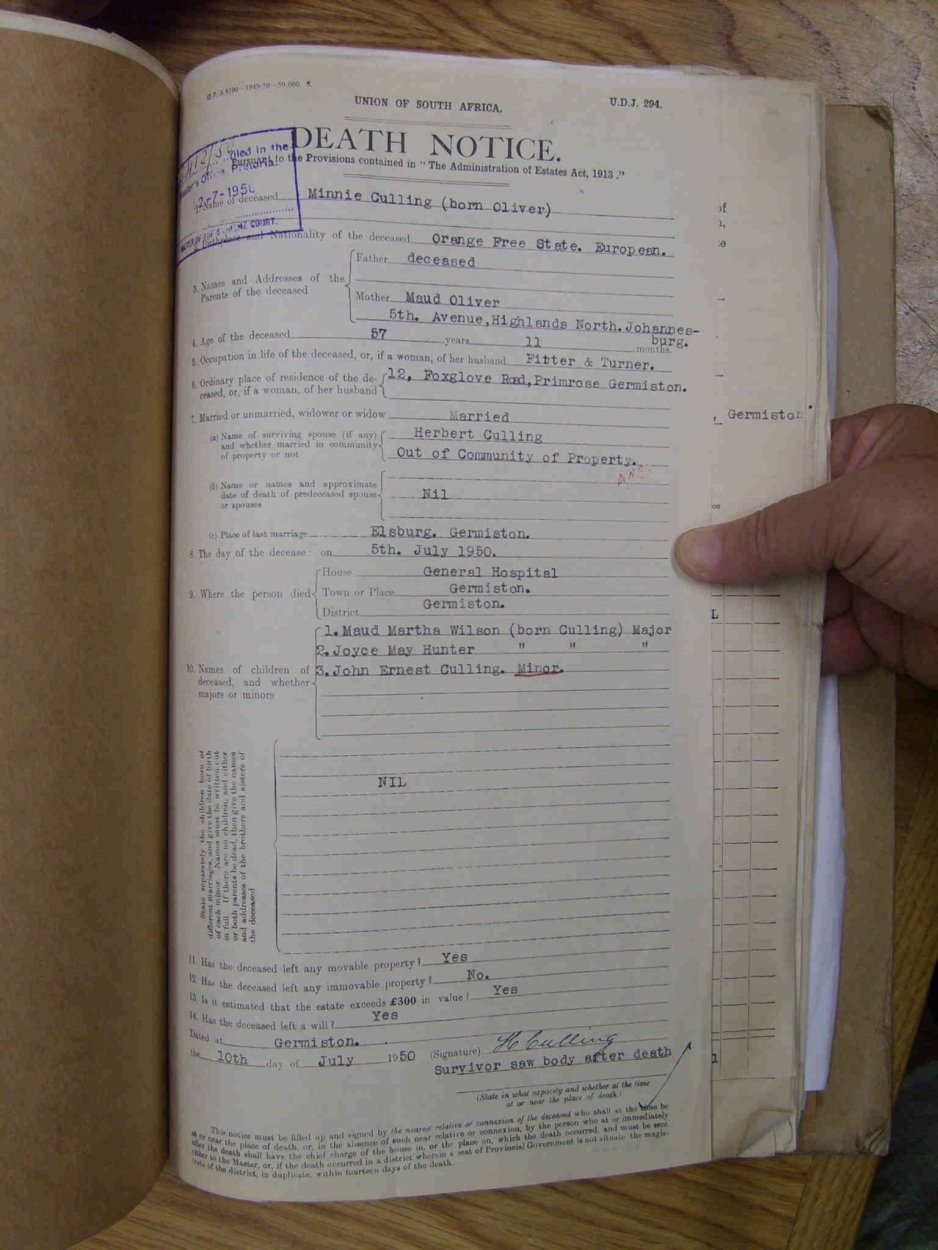 O.P.-S.9390-1949-50-50,000. S.
UNION OF SOUTH AFRICA.
U.D.J. 294.
DEATH NOTICE.
Pursuant to the Provisions contained in "The Administration of Estates Act, 1913."
Filed in the
Master's Office Pretoria
-7-195
COURT.
Name of deceased Minnie Culling (born Oliver)
Birthplace and Nationality of the deceased Orange Free State. European.
3. Names and Addresses of the Parents of the deceased
Father deceased
Mother Maud Oliver
5th. Avenue, Highlands North. Johannes-
burg.
4. Age of the deceased 57 years 11 months.
5. Occupation in life of the deceased, or, if a woman, of her husband Fitter & Turner.
6. Ordinary place of residence of the de-
ceased, or, if a woman, of her husband
12, Foxglove Road, Primrose Germiston.
7. Married or unmarried, widower or widow Married
(a) Name of surviving spouse (if any)
and whether married in community
of property or not
Herbert Culling
Out of Community of Property.
ANC
(b) Name or names and approximate
date of death of predeceased spouse
or spouses
Nil
(c) Place of last marriage Elsburg. Germiston.
8. The day of the decease on 5th. July 1950.
9. Where the person died
House General Hospital
Town or Place Germiston.
District Germiston.
10. Names of children of
deceased, and whether
majors or minors
1. Maud Martha Wilson (born Culling) Major
2. Joyce May Hunter " " "
3. John Ernest Culling. Minor.
State separately the children born of
different marriages, and give the date of birth
of each minor. Names must be written out
in full. If there are no children, and either
or both parents be dead, then give the names
and addresses of the brothers and sisters of
the deceased
NIL
11. Has the deceased left any movable property? Yes
12. Has the deceased left any immovable property? No.
13. Is it estimated that the estate exceeds £300 in value? Yes
14. Has the deceased left a will? Yes
Dated at Germiston.
the 10th day of July 1950 (Signature) H Culling
Survivor saw body after death
(State in what capacity and whether at the time
at or near the place of death.)
This notice must be filled up and signed by the nearest relative or connexion of the deceased who shall at the time be
at or near the place of death, or, in the absence of such near relative or connexion, by the person who at or immediately
after the death shall have the chief charge of the house in, or the place on, which the death occurred, and must be sent
either to the Master, or, if the death occurred in a district wherein a seat of Provincial Government is not situate the magis-
trate of the district, in duplicate, within fourteen days of the death.
of
, Germiston